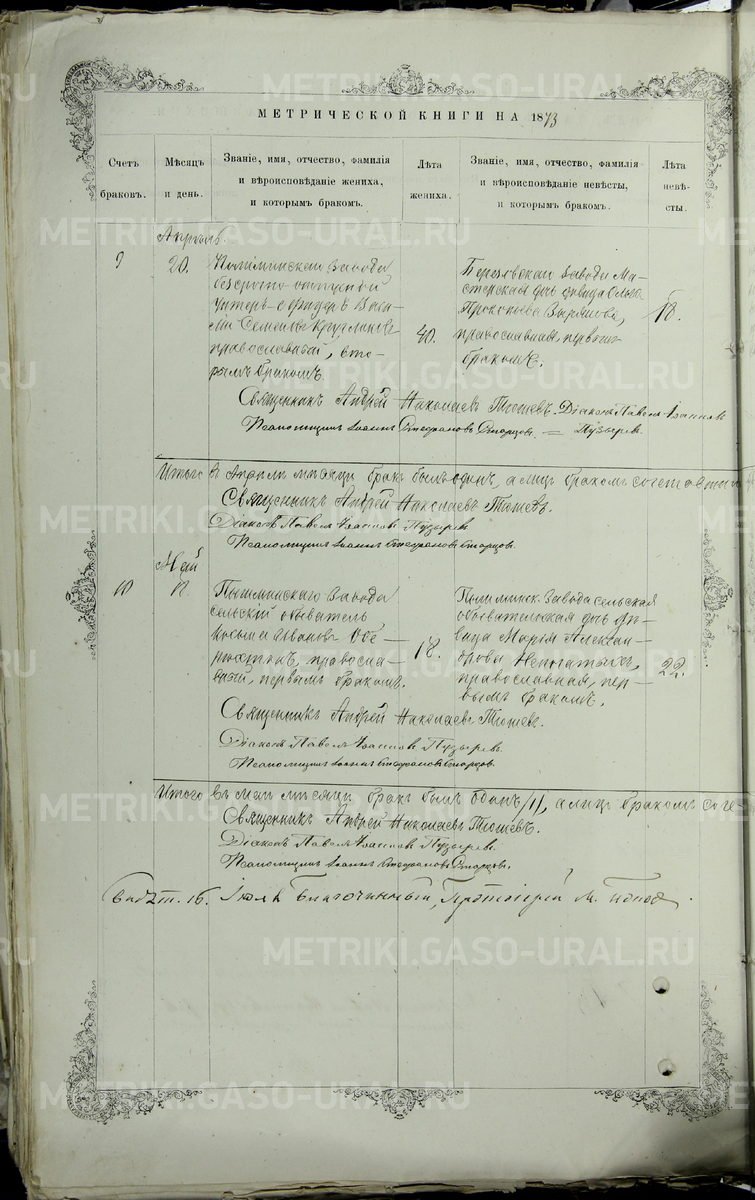 МЕТРИЧЕСКОЙ КНИГИ НА 1873
Счетъ
браковъ.
Мѣсяцъ
и день.
Званіе, имя, отчество, фамилія
и вѣроисповѣданіе жениха,
и которымъ бракомъ.
Лѣта
жениха.
Званіе, имя, отчество, фамилія
и вѣроисповѣданіе невѣсты,
и которымъ бракомъ.
Лѣта
невѣ-
сты.
Апрѣль
9
20.
Завода
безсрочно отпускной
Унтеръ-офицеръ
Семеновъ
православный, вто-
рымъ бракомъ.
40.
Березовскаго завода Ма-
стерская дочь дѣвица Ольга
Прокопьева
православная, первымъ
бракомъ.
18.
Священникъ Андрей Николаевъ Тюшевъ. Діаконъ Павелъ Іоанновъ
Псаломщикъ Іоаннъ Стефановъ Старцовъ. = Пузыревъ.
Итого въ Апрѣлѣ мѣсяцѣ бракъ былъ одинъ, а лицъ бракомъ
Священникъ Андрей Николаевъ Тюшевъ.
Діаконъ Павелъ Іоанновъ Пузыревъ.
Псаломщикъ Іоаннъ Стефановъ Старцовъ.
Май
10
Пышминскаго завода
сельскій обыватель
Косьма Ивановъ Обе-
православ-
ный, первымъ бракомъ.
18.
Завода сельская
обывательская дочь дѣ-
вица Марія Алексан-
дрова
православная, пер-
вымъ бракомъ.
22.
Священникъ Андрей Николаевъ Тюшевъ.
Діаконъ Павелъ Іоанновъ Пузыревъ.
Псаломщикъ Іоаннъ Стефановъ Старцовъ.
Итого въ маѣ мѣсяцѣ бракъ былъ одинъ /1/, а лицъ бракомъ соче-
Священникъ Андрей Николаевъ Тюшевъ.
Діаконъ Павелъ Іоанновъ Пузыревъ.
Псаломщикъ Іоаннъ Стефановъ Старцовъ.
16. Іюля Благочинный, Протоіерей М. Поповъ
METRIKI.GASO-URAL.RU